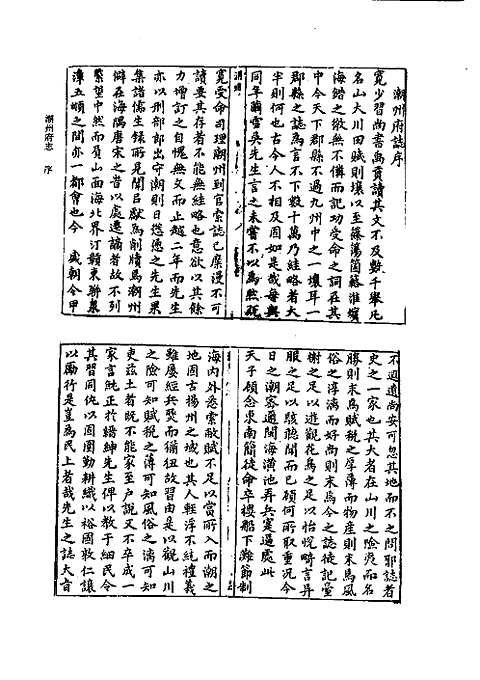 潮州府誌序
寛少習尚書禹貢讀其文不及數千舉凡
名山大川田賦則壤以至篠簜箘簵淮蠙
海錯之微無不備而記功受命之詞在其
中今天下郡縣不過九州中之一壤耳一
郡縣之誌為言不下數十萬乃絓略者大
半則何也古今人不相及固如是哉每與
同年雪吳先生言之未嘗不以為然
寛受命司理潮州到官索誌已糜漫不可
讀要其存者不能無絓略也意欲以其餘
力增訂之自愧無文而止越二年而先生
亦以刑部郎出守潮則日慫恿之先生果
集諸儒生錄所見聞呂獻為削牘焉潮州
僻在海隅唐宋之昔以處遷謫者故不列
繁望中然而負山面海北界汀贛東聯
漳五嶺之間亦一都會也今 盛朝令甲
潮州府志 序
不遐遺尚安可忽其地而不之問耶誌者
史之一家也其大者在山川之險夷而名
勝則末焉賦稅之厚薄而物產則末焉風
俗之淳漓而好尚則末焉今之誌徒記臺
榭之足以遊觀花鳥之足以怡悅疇言异
服之足以駭聽聞而已頋何所取重况今
日之潮寄通閩海潢池弄兵寔逼處此
天子頋念東南簡徒命卒樓船下瀨節制
海内外悉索敝賦不足以當所入而潮之
地固古揚州之域也其人輕浮不純禮義
雖屢經兵燹而猶狃故習由是以觀山川
之險可知賦稅之薄可知風俗之漓可知
吏茲土者既不能家至户說又不卒成一
家言純正於縉紳先生俾以教于細民令
其習同仇以固圉勤耕織以裕國敦仁讓
以勵行是豈為民上者哉先生之誌大旨